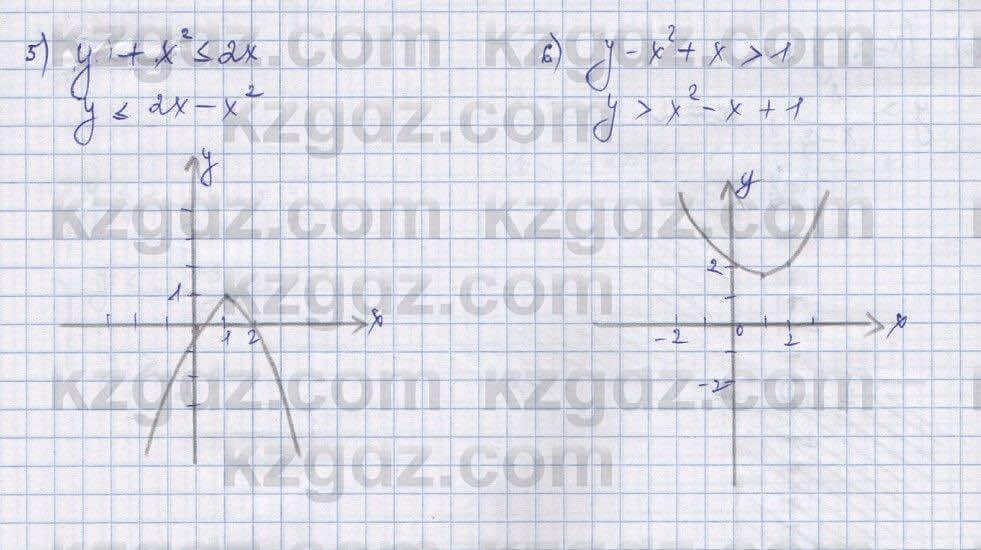 5) y + x² ≤ 2x
y ≤ 2x - x²
y
1
1 2
x
6) y - x² + x > 1
y > x² - x + 1
y
2
-2 0 2
x
-2
kzgdz.com kzgdz.com
kzgdz.com
kzgdz.com kzgdz.com
kzgdz.com
kzgdz.com kzgdz.com
kzgdz.com